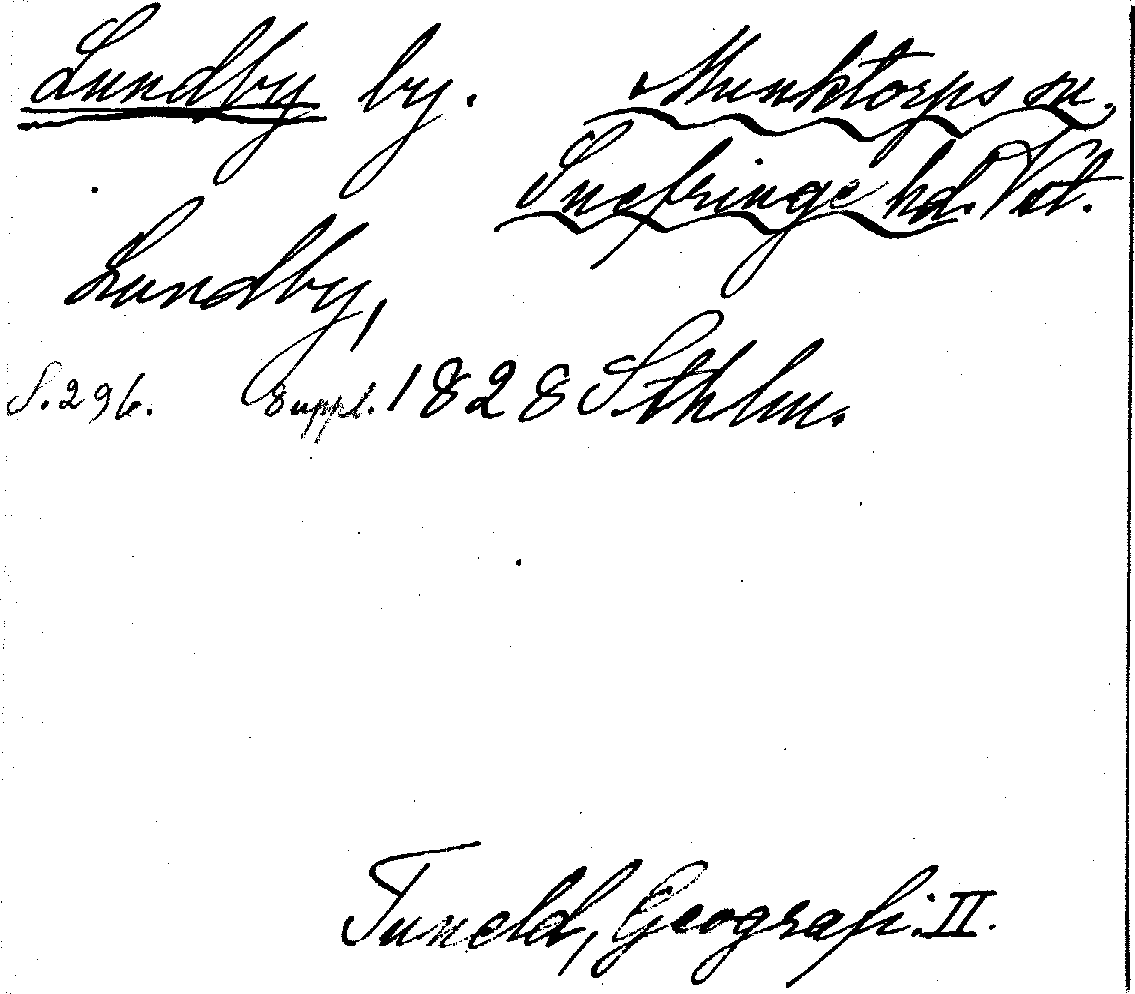 Lundby by. Munktorps sn.
Snefringe hd. Vstm.
Lundby,
S. 296. Suppl. 1828 Sthlm.
Tuneld, Geografi. II.